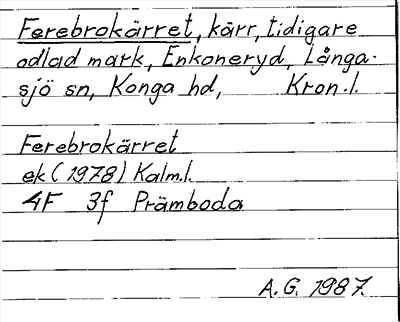 Ferebrokärret, kärr, tidigare
odlad mark, Enkoneryd, Långa-
sjö sn, Konga hd, Kron.l.
Ferebrokärret
ek (1978) Kalm.l.
4F 3f Främboda
A.G. 1987.